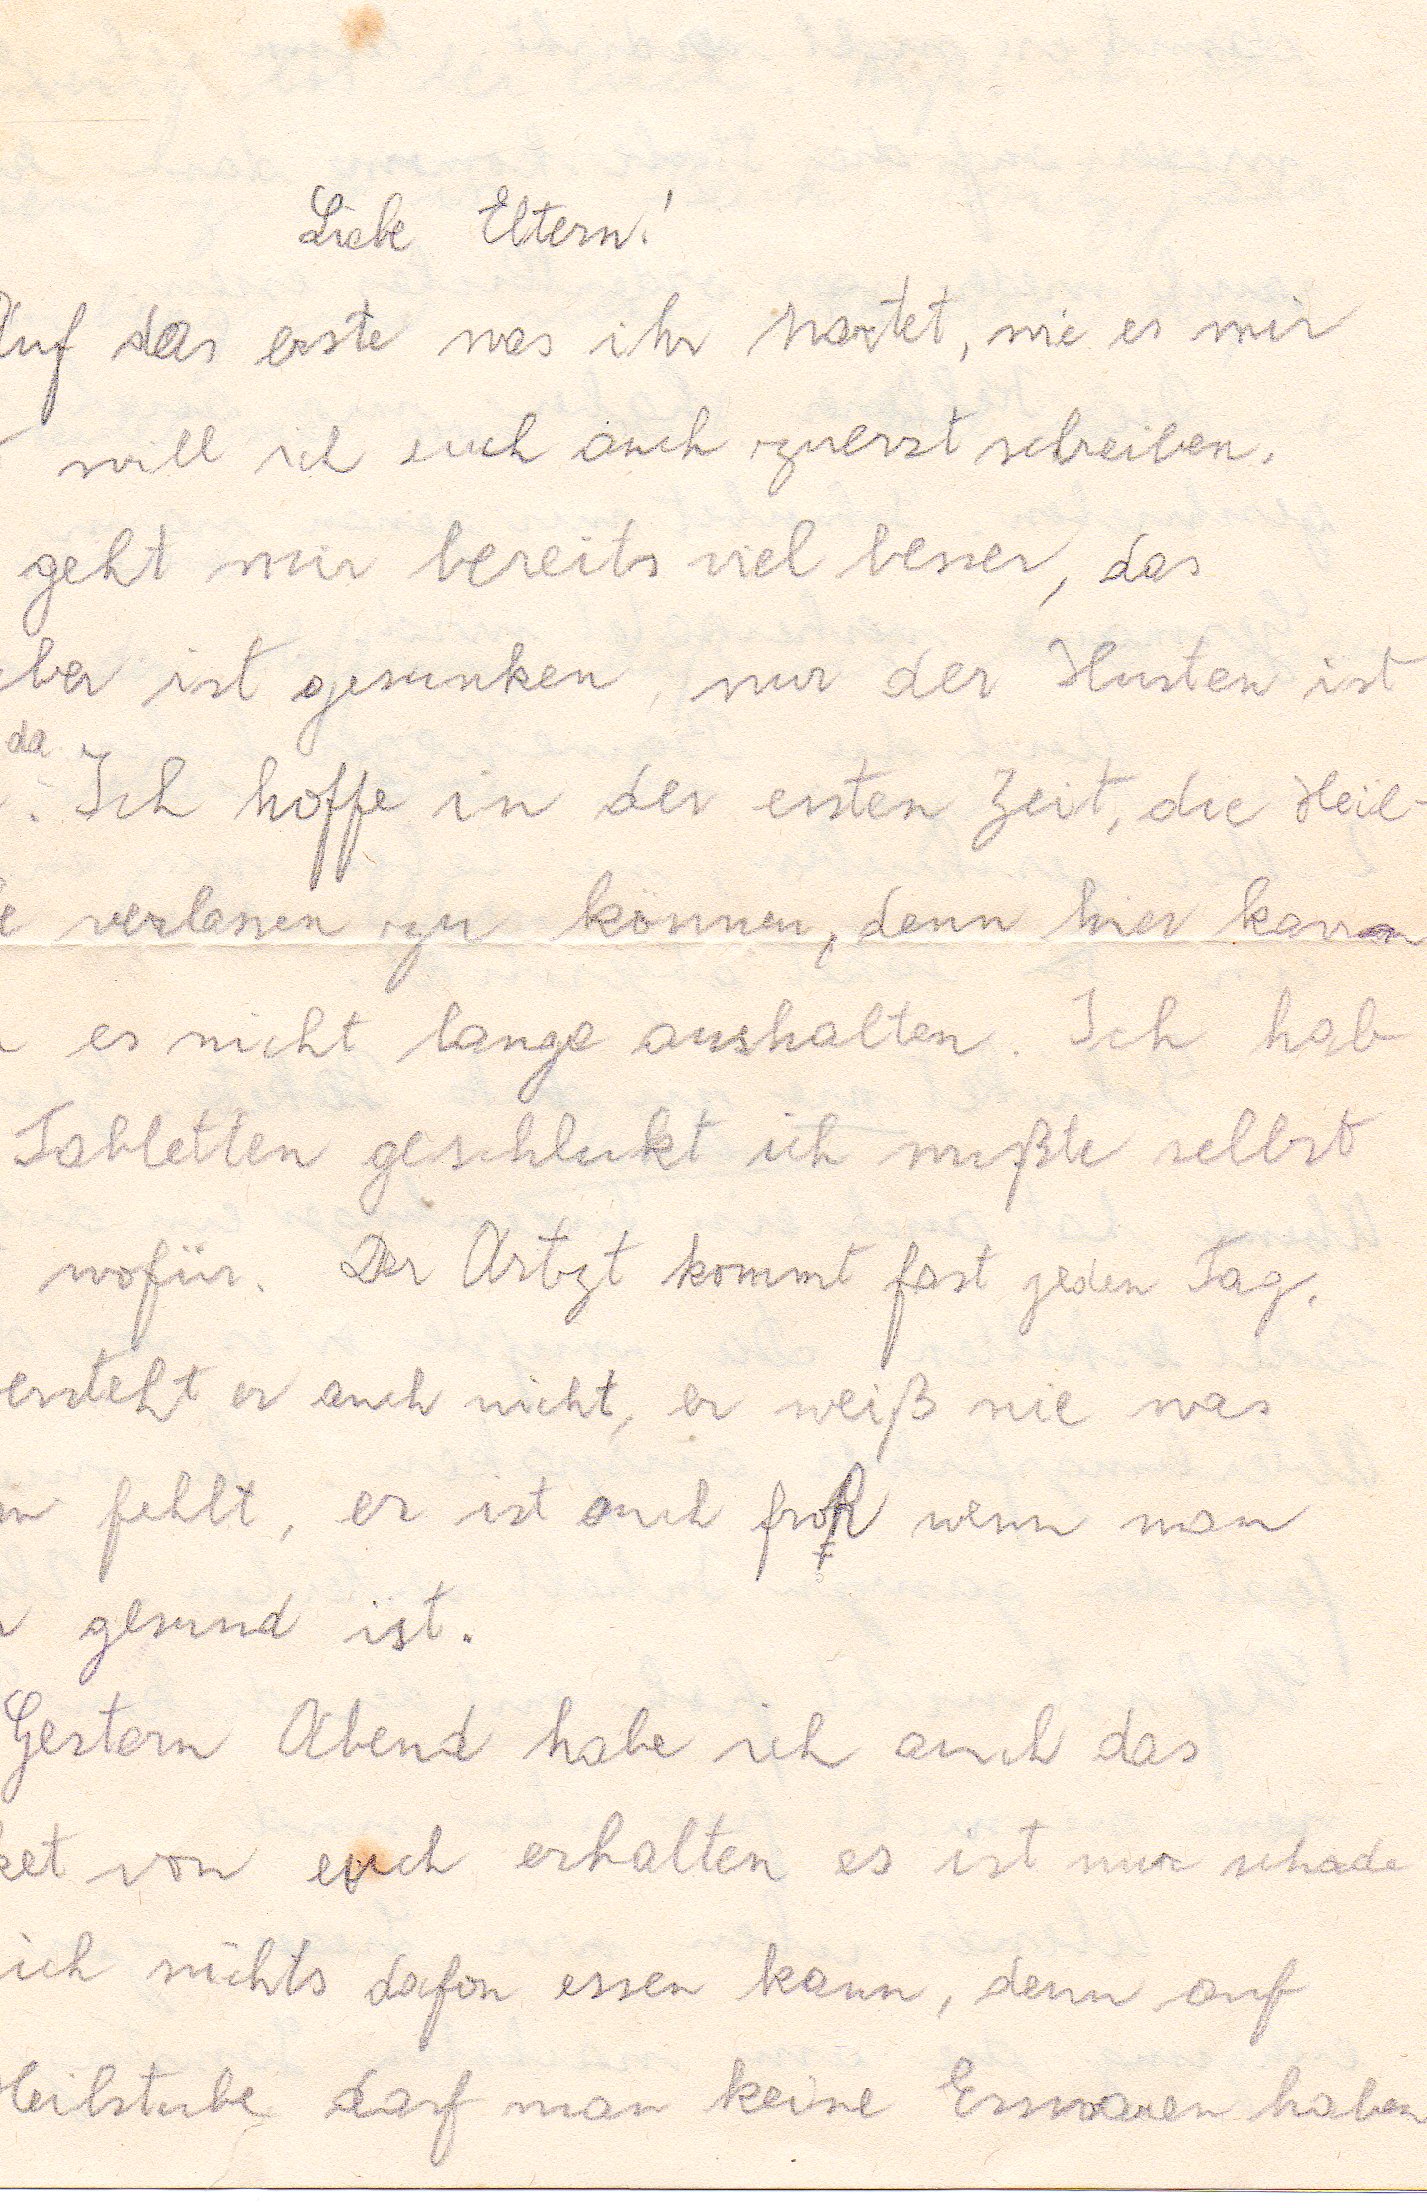 Liebe Eltern!
Auf das erste was ihr wartet, wie es mir
will ich euch auch zuerst schreiben.
geht mir bereits viel besser, das
ber ist gesunken, nur der Husten ist
da
Ich hoffe in der ersten Zeit, die Heil-
e verlassen zu können, denn hier kann
es nicht lange aushalten. Ich hab
Tabletten geschlukt ich wußte selbst
wofür. Der Artzt kommt fast jeden Tag.
ersteht er auch nicht, er weiß nie was
fehlt, er ist auch froh wenn man
gesund ist.
Gestern Abend habe ich auch das
ket von euch erhalten es ist nur schade
ich nichts dafon essen kann, denn auf
Heilstube darf man keine Esswaren haben